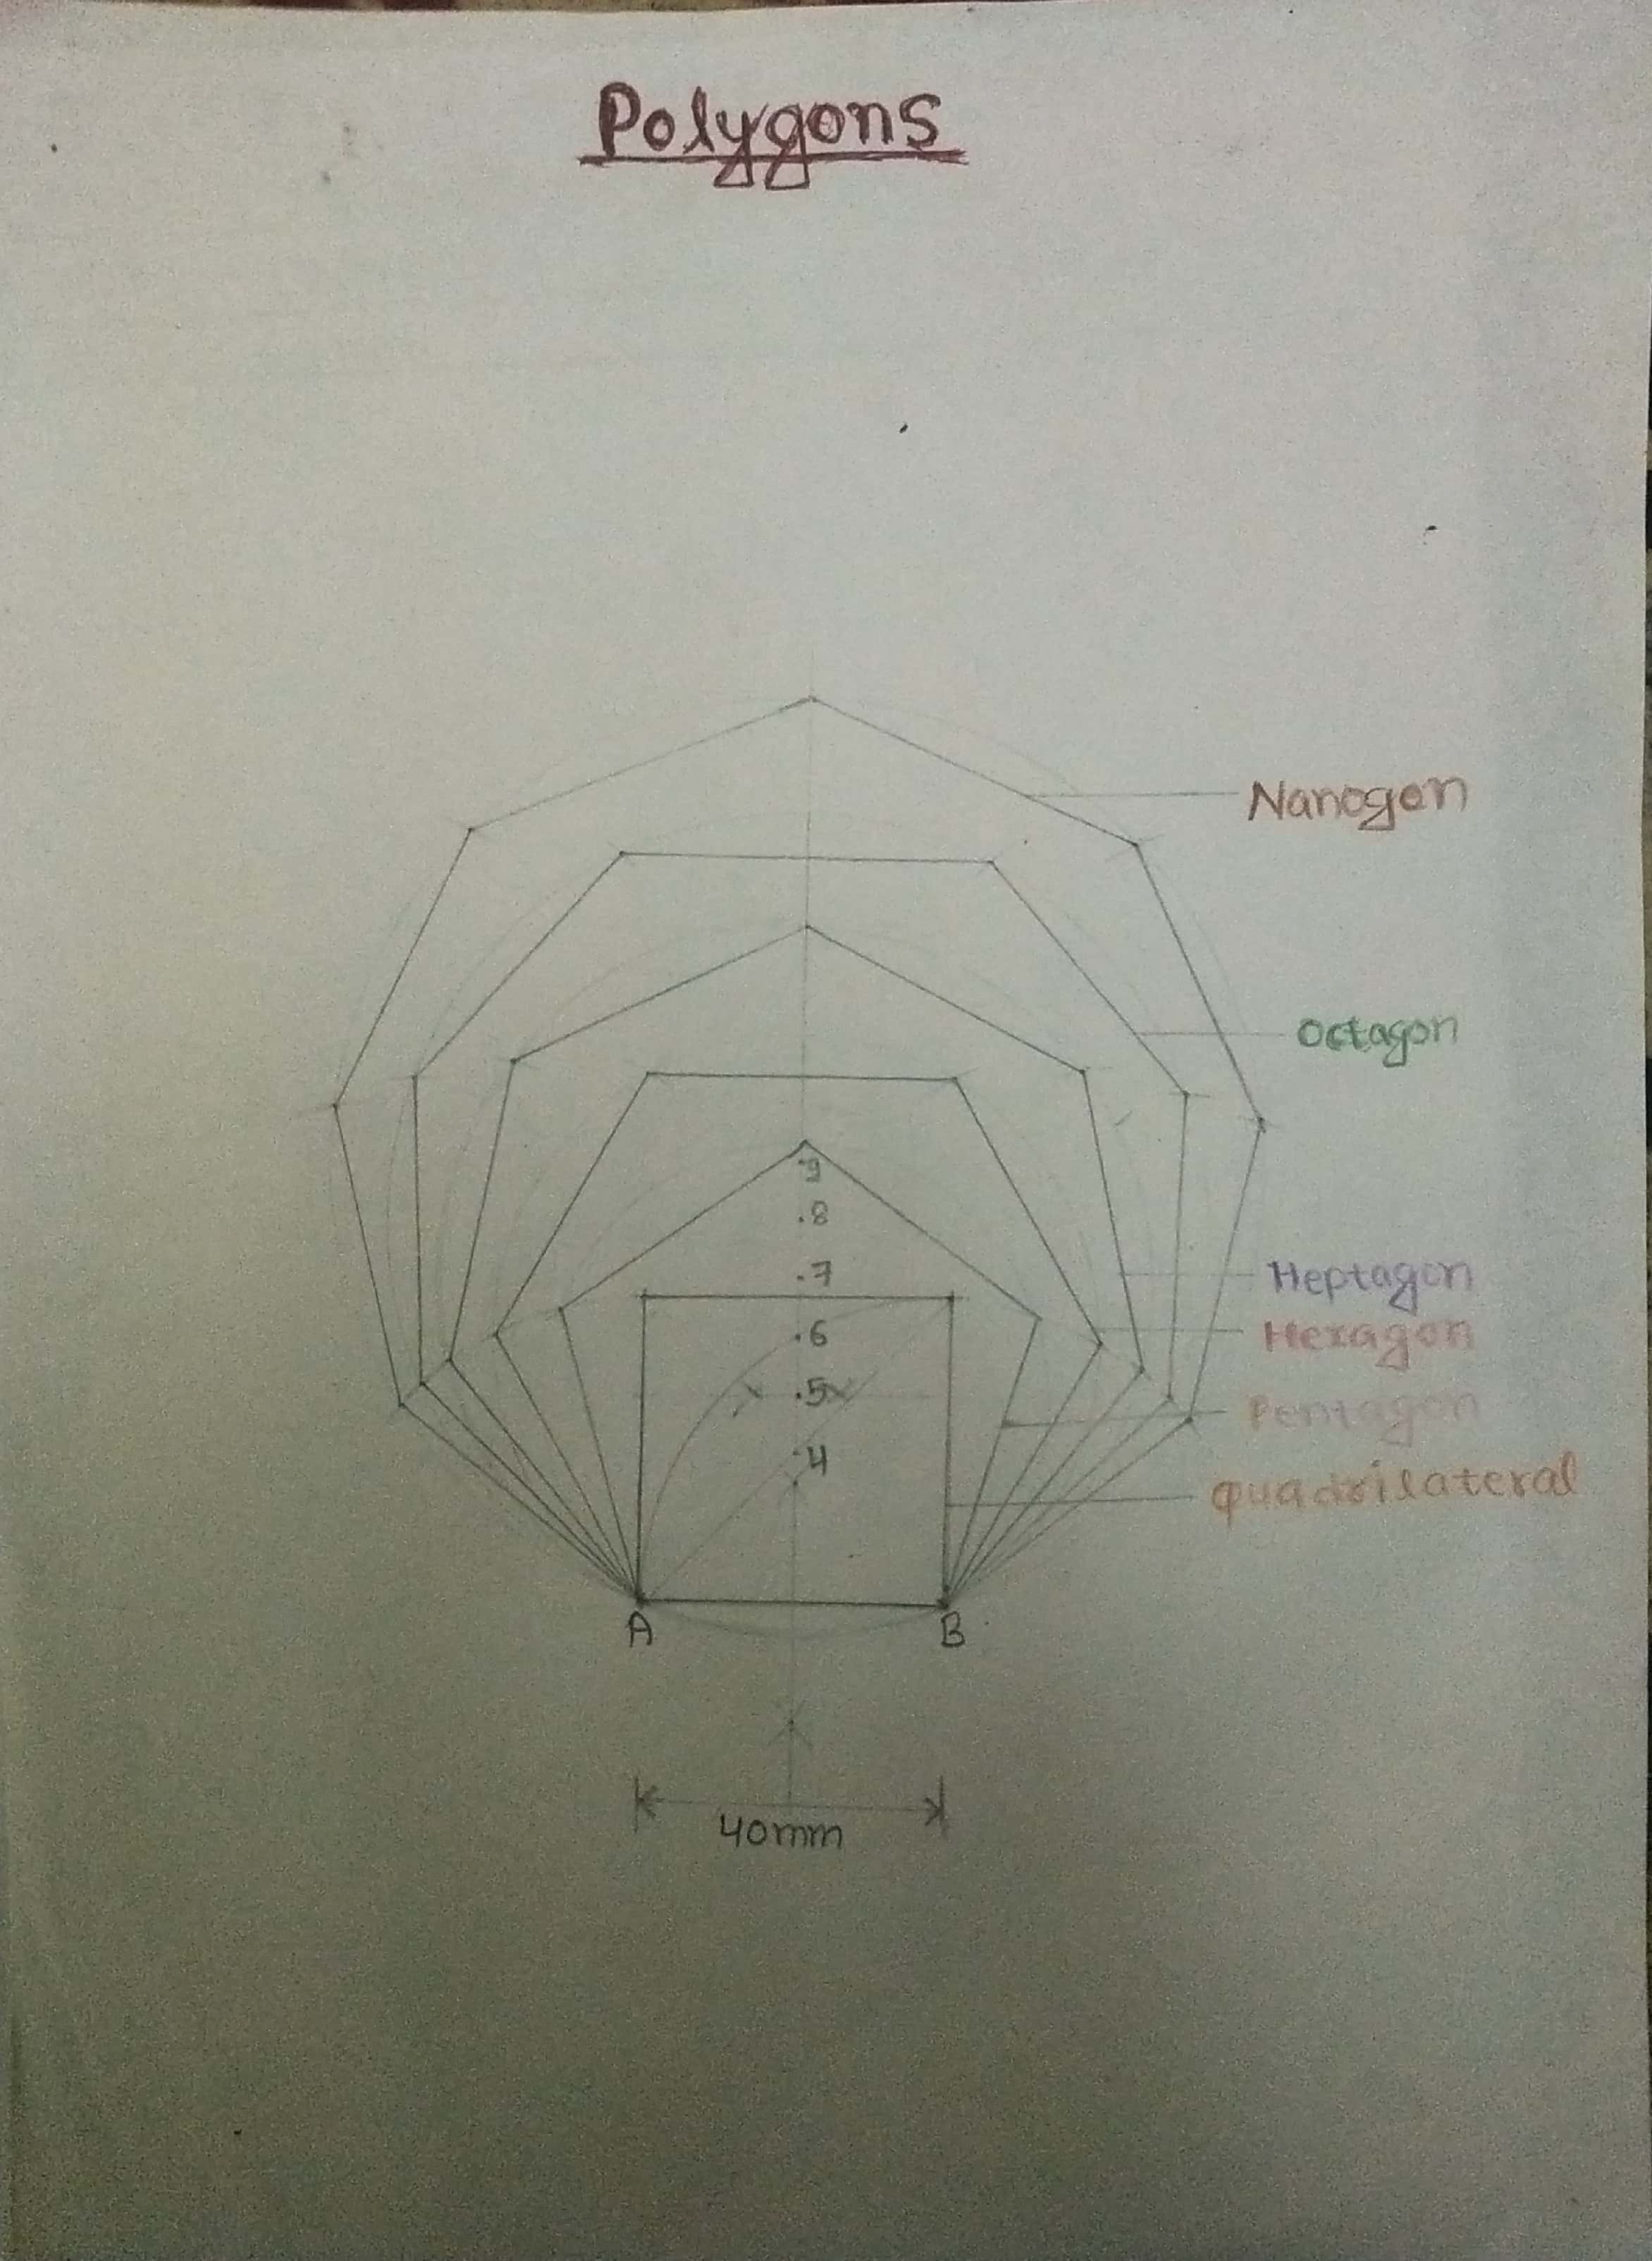 Polygons
Nanogon
Octagon
.9
.8
.7
Heptagon
.6
Hexagon
.5
Pentagon
.4
Quadrilateral
A
B
40mm